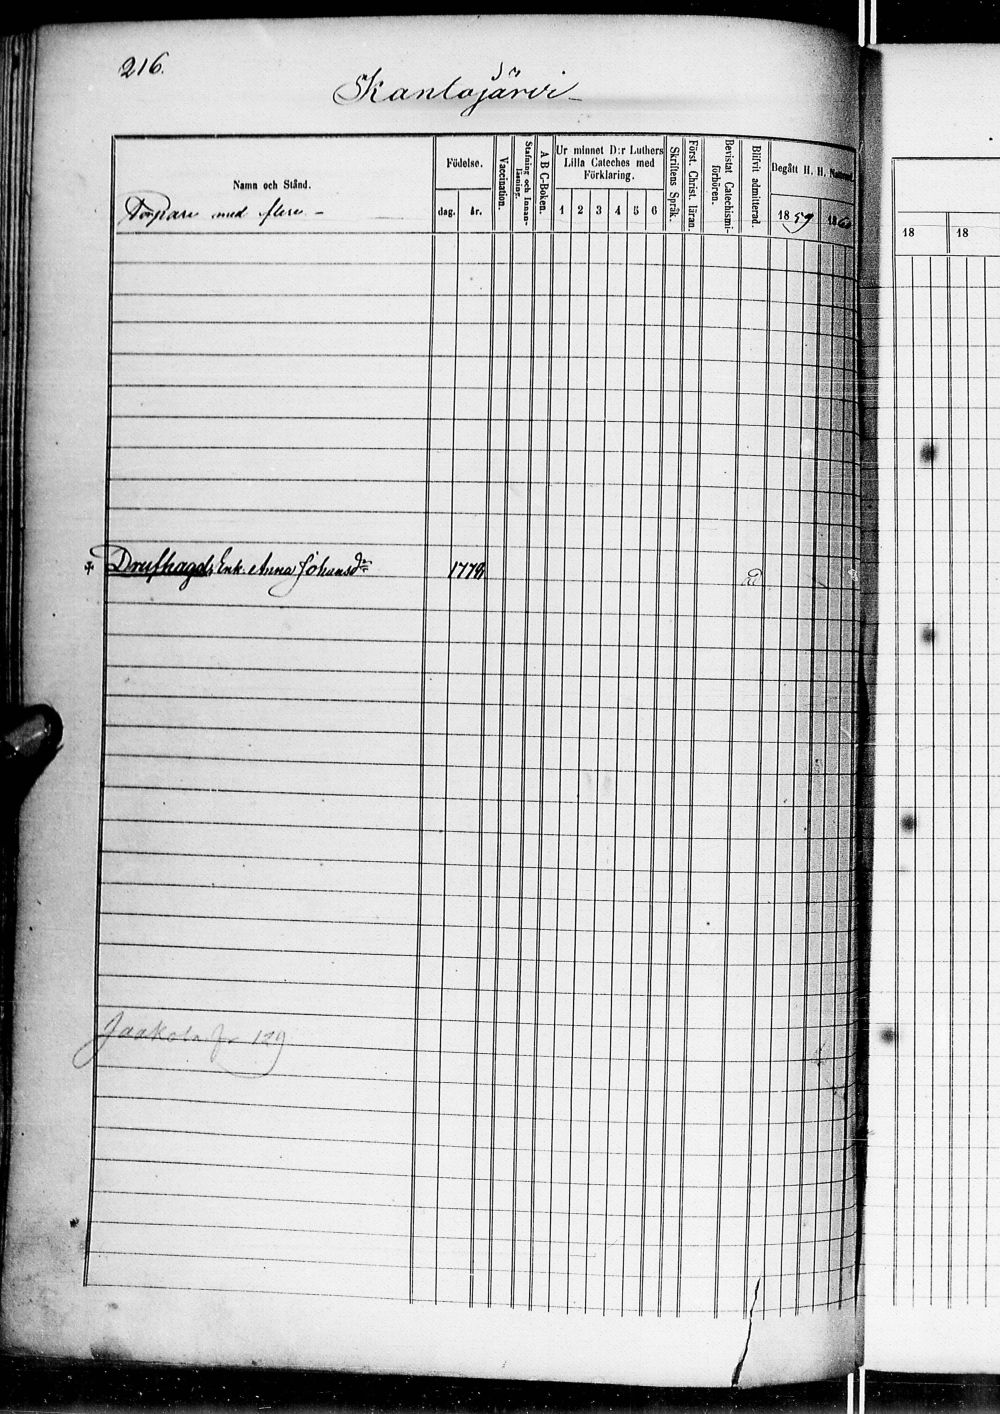 216.
Kantojärvi
Namn och Stånd.
Torpare med flere.
Födelse.
dag. år.
Vaccination.
Stafning och Innan-
läsning.
A B C-Boken.
Ur minnet D:r Luthers
Lilla Cateches med
Förklaring.
1 2 3 4 5 6
Skriftens Språk.
Först. Christ. läran.
Bevistat Catechismi-
förhören.
Blifvit admitterad.
Begått H. H. Nattvard
1859 1860
18 18
Enk. Anna Johansdr 1778
129